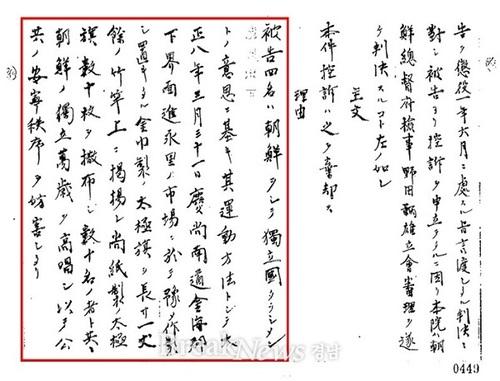 告ヲ懲役一年六月ニ處スル旨言渡シタル判決ニ
對シ被告ヨリ控訴ヲ申立タルニ因リ本院朝
鮮總督府檢事野田鞆雄立會審理ヲ遂
ケ判決スルコト左ノ如シ
主文
本件控訴ハ之ヲ棄却ス
理由
被告四名ハ朝鮮ヲシテ獨立國タラシメン
トノ意思ニ基キ其運動方法トシテ大
正八年三月三十一日慶尚南道金海郡
下界面進永里ノ市場ニ於テ豫テ作製
シ置キタル金巾製ノ太極旗ヲ長サ一丈
餘ノ竹竿上ニ揭揚シ尚紙製ノ太極
旗數十枚ヲ撒布シ數十名ノ者ト共ニ
朝鮮ノ獨立萬歲ヲ高唱シ以テ公
共ノ安寧秩序ヲ妨害シタリ
BreakNews 경남
0449